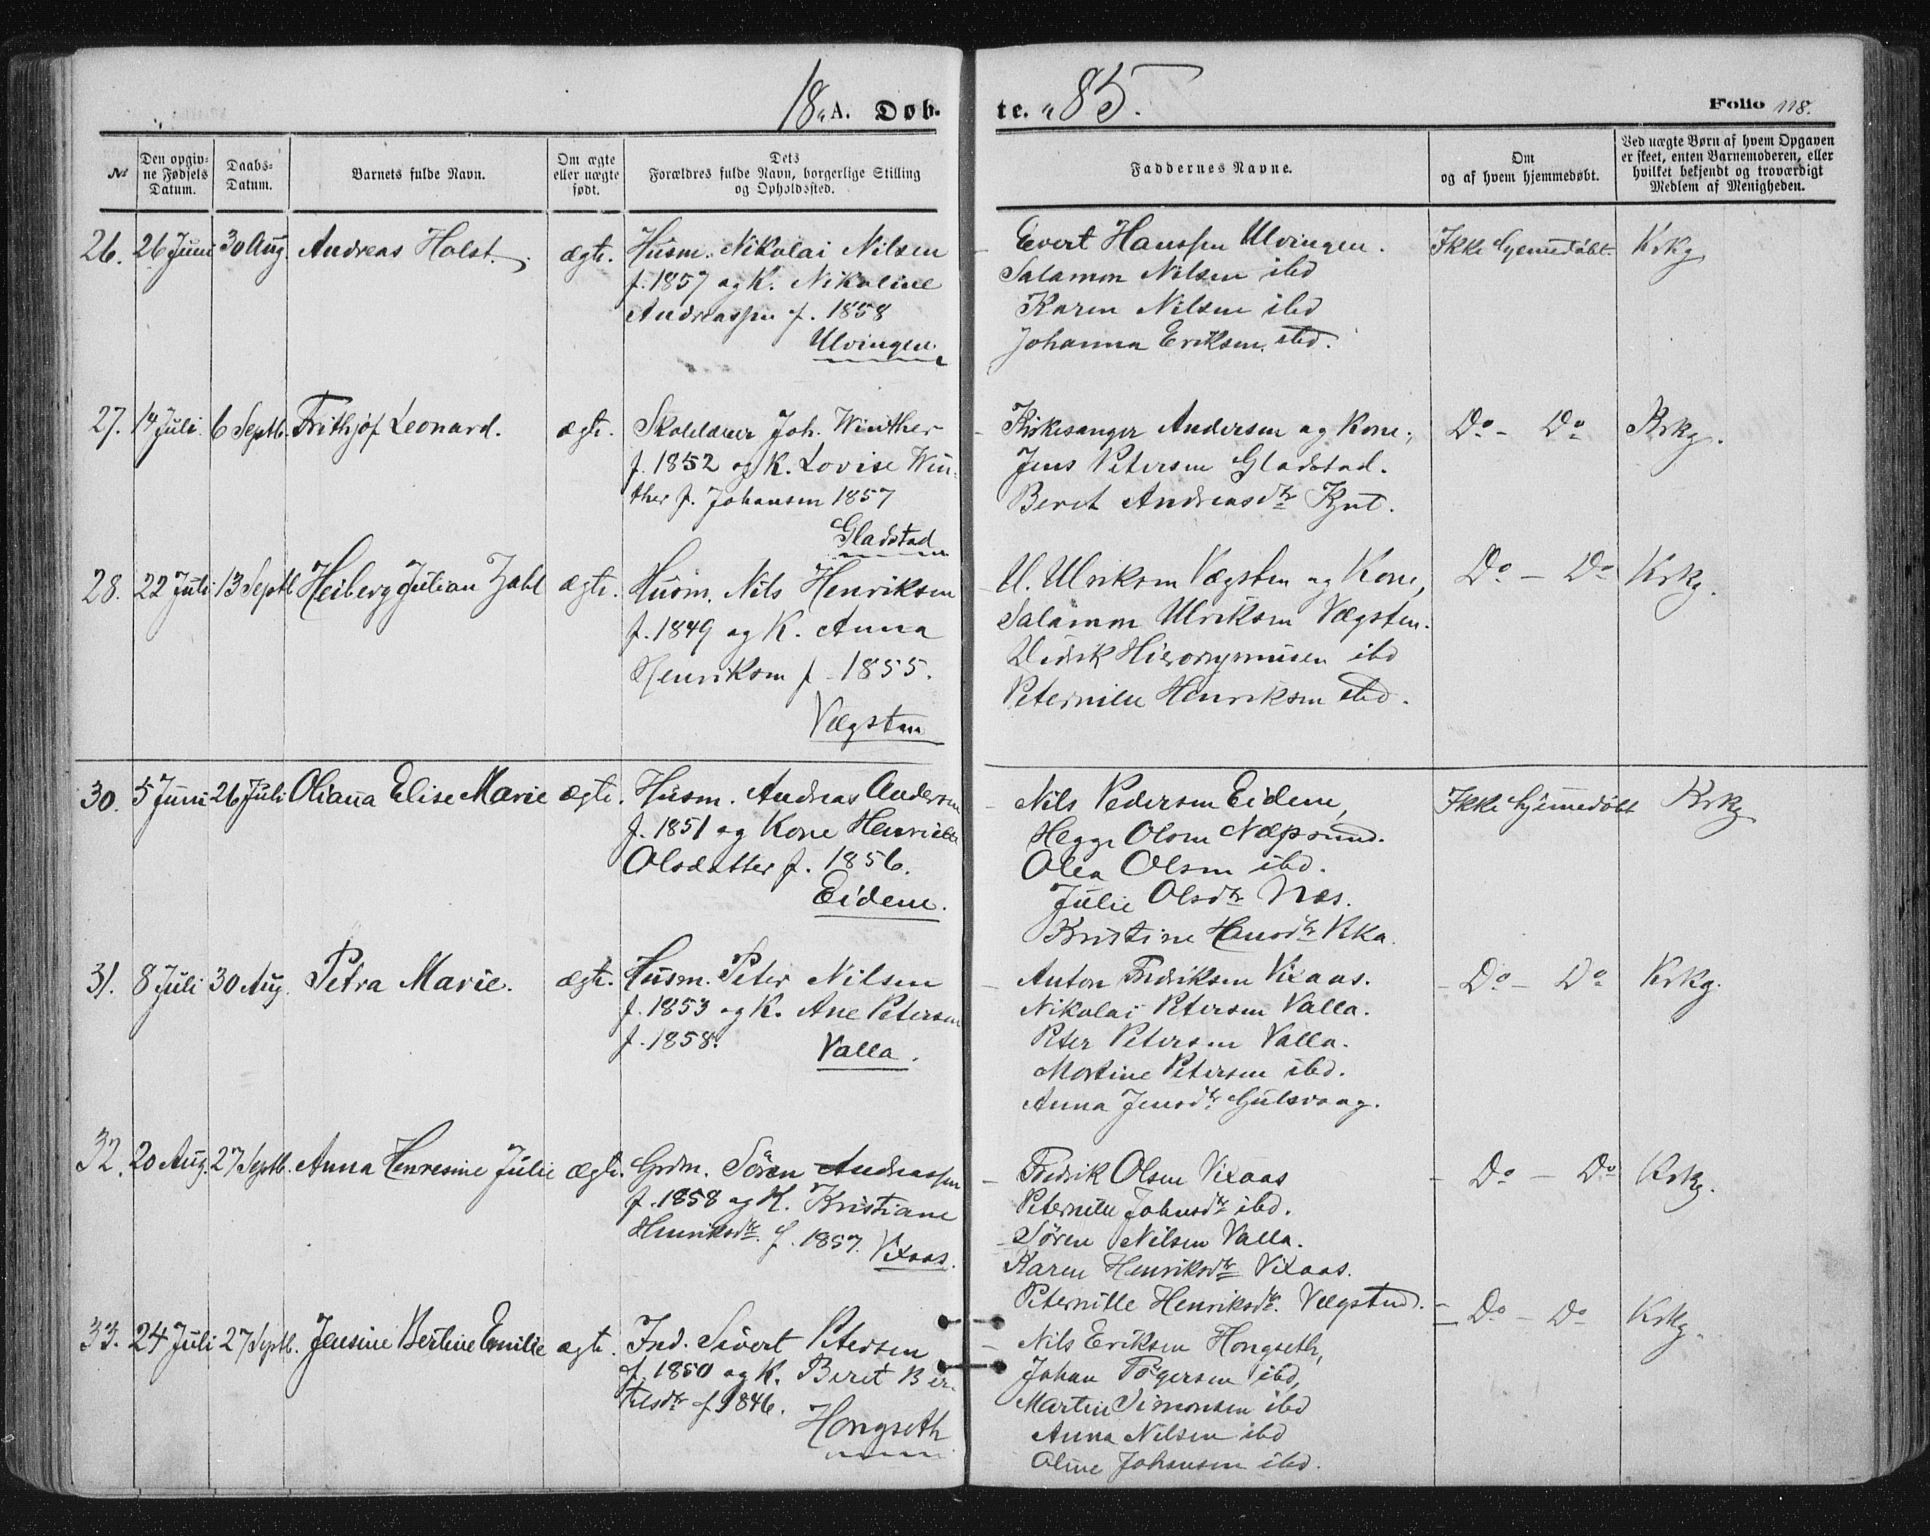 18 A. Døb-
te. 85.
Folio 118.
№
Den opgiv-
ne Fødsels
Datum.
Daabs-
Datum.
Barnets fulde Navn.
Om ægte
eller nægte
født.
Dets
Forældres fulde Navn, borgerlige Stilling
og Opholdssted.
Faddernes Navne.
Om
og af hvem hjemmedøbt.
Ved nægte Børn af hvem Opgaven
er skeet, enten Barnemoderen, eller
hvilket bekjendt og troværdigt
Medlem af Menigheden.
26. 26 Juni 30 Aug. Andreas Holst. ægte.
Husm. Nikolai Nilsen
f. 1857 og K. Nikoline
Andreassen f. 1858
Ulvingen
Evert Hanssen Ulvingen.
Salamon Nilsen ibd
Karen Nilsen ibd
Johanna Eriksen ibd.
Ikke hjemmedøbt. Krkg
27. 14 Juli. 6 Septb. Frithjof Leonard. ægte.
Skolelærer Joh. Winther
f. 1852 og K. Lovise Win-
ther f. Johansen 1857
Gladstad
Kirkesanger Andersen og Kone,
Jens Petersen Gladstad.
Beret Andreasdtr
Do - Do Krkg.
28. 22 Juli 13 Septb Heiberg Julian Zahl ægte.
Husm. Nils Henriksen
f. 1849 og K. Anna
Henriksen f. 1855.
Vægsten
U. Ulriksen Vægsten og Kone,
Salamon Ulriksen Vægsten.
Didrik Hieronymusen ibd
Peternille Henriksen ibd.
Do - Do Krkg.
30. 5 Juni 26 Juli Oliana Elise Marie ægte.
Husm. Andreas Andersen
f. 1851 og Kone Henriette
Olsdatter f. 1856.
Eidem.
Nils Pedersen Eidem,
Hegge Olsen Næssund.
Olea Olsen ibd.
Julie Olsdtr Næs.
Kristine Hansdtr
Ikke hjemmedøbt Krkg
31. 8 Juli 30 Aug. Petra Marie. ægte.
Husm. Peter Nilsen
f. 1853 og K. Ane Petersen
f. 1858.
Valla.
Anton Fredriksen Vixaas.
Nikolai Petersen Valla.
Peter Petersen Valla.
Martine Petersen ibd.
Anna Jensdtr Gulsvaag.
- Do - Do Krkg.
32. 20 Aug. 27 Septb. Anna Henresine Julie ægte.
Grdm. Sören Andreassen
f. 1858 og K. Kristiane
Henriksdtr. f. 1857. Vixaas.
Fredrik Olsen Vixaas
Peternille Johnsdtr ibd.
Søren Nilsen Valla.
Karen Henriksdtr Vixaas.
Peternille Henriksdtr. Vægsted.
- Do - Do Krkg.
33. 24 Juli 27 Septb. Jensine Bertine Emilie ægte.
Ind. Sivert Petersen
f. 1850 og K. Beret Ber-
telsdtr f. 1846.
Hongseth
Nils Eriksen Hongseth,
Johan Togersen ibd,
Martin Simonsen ibd
Anna Nilsen ibd
Oline Johansen ibd.
- Do - Do Krkg.